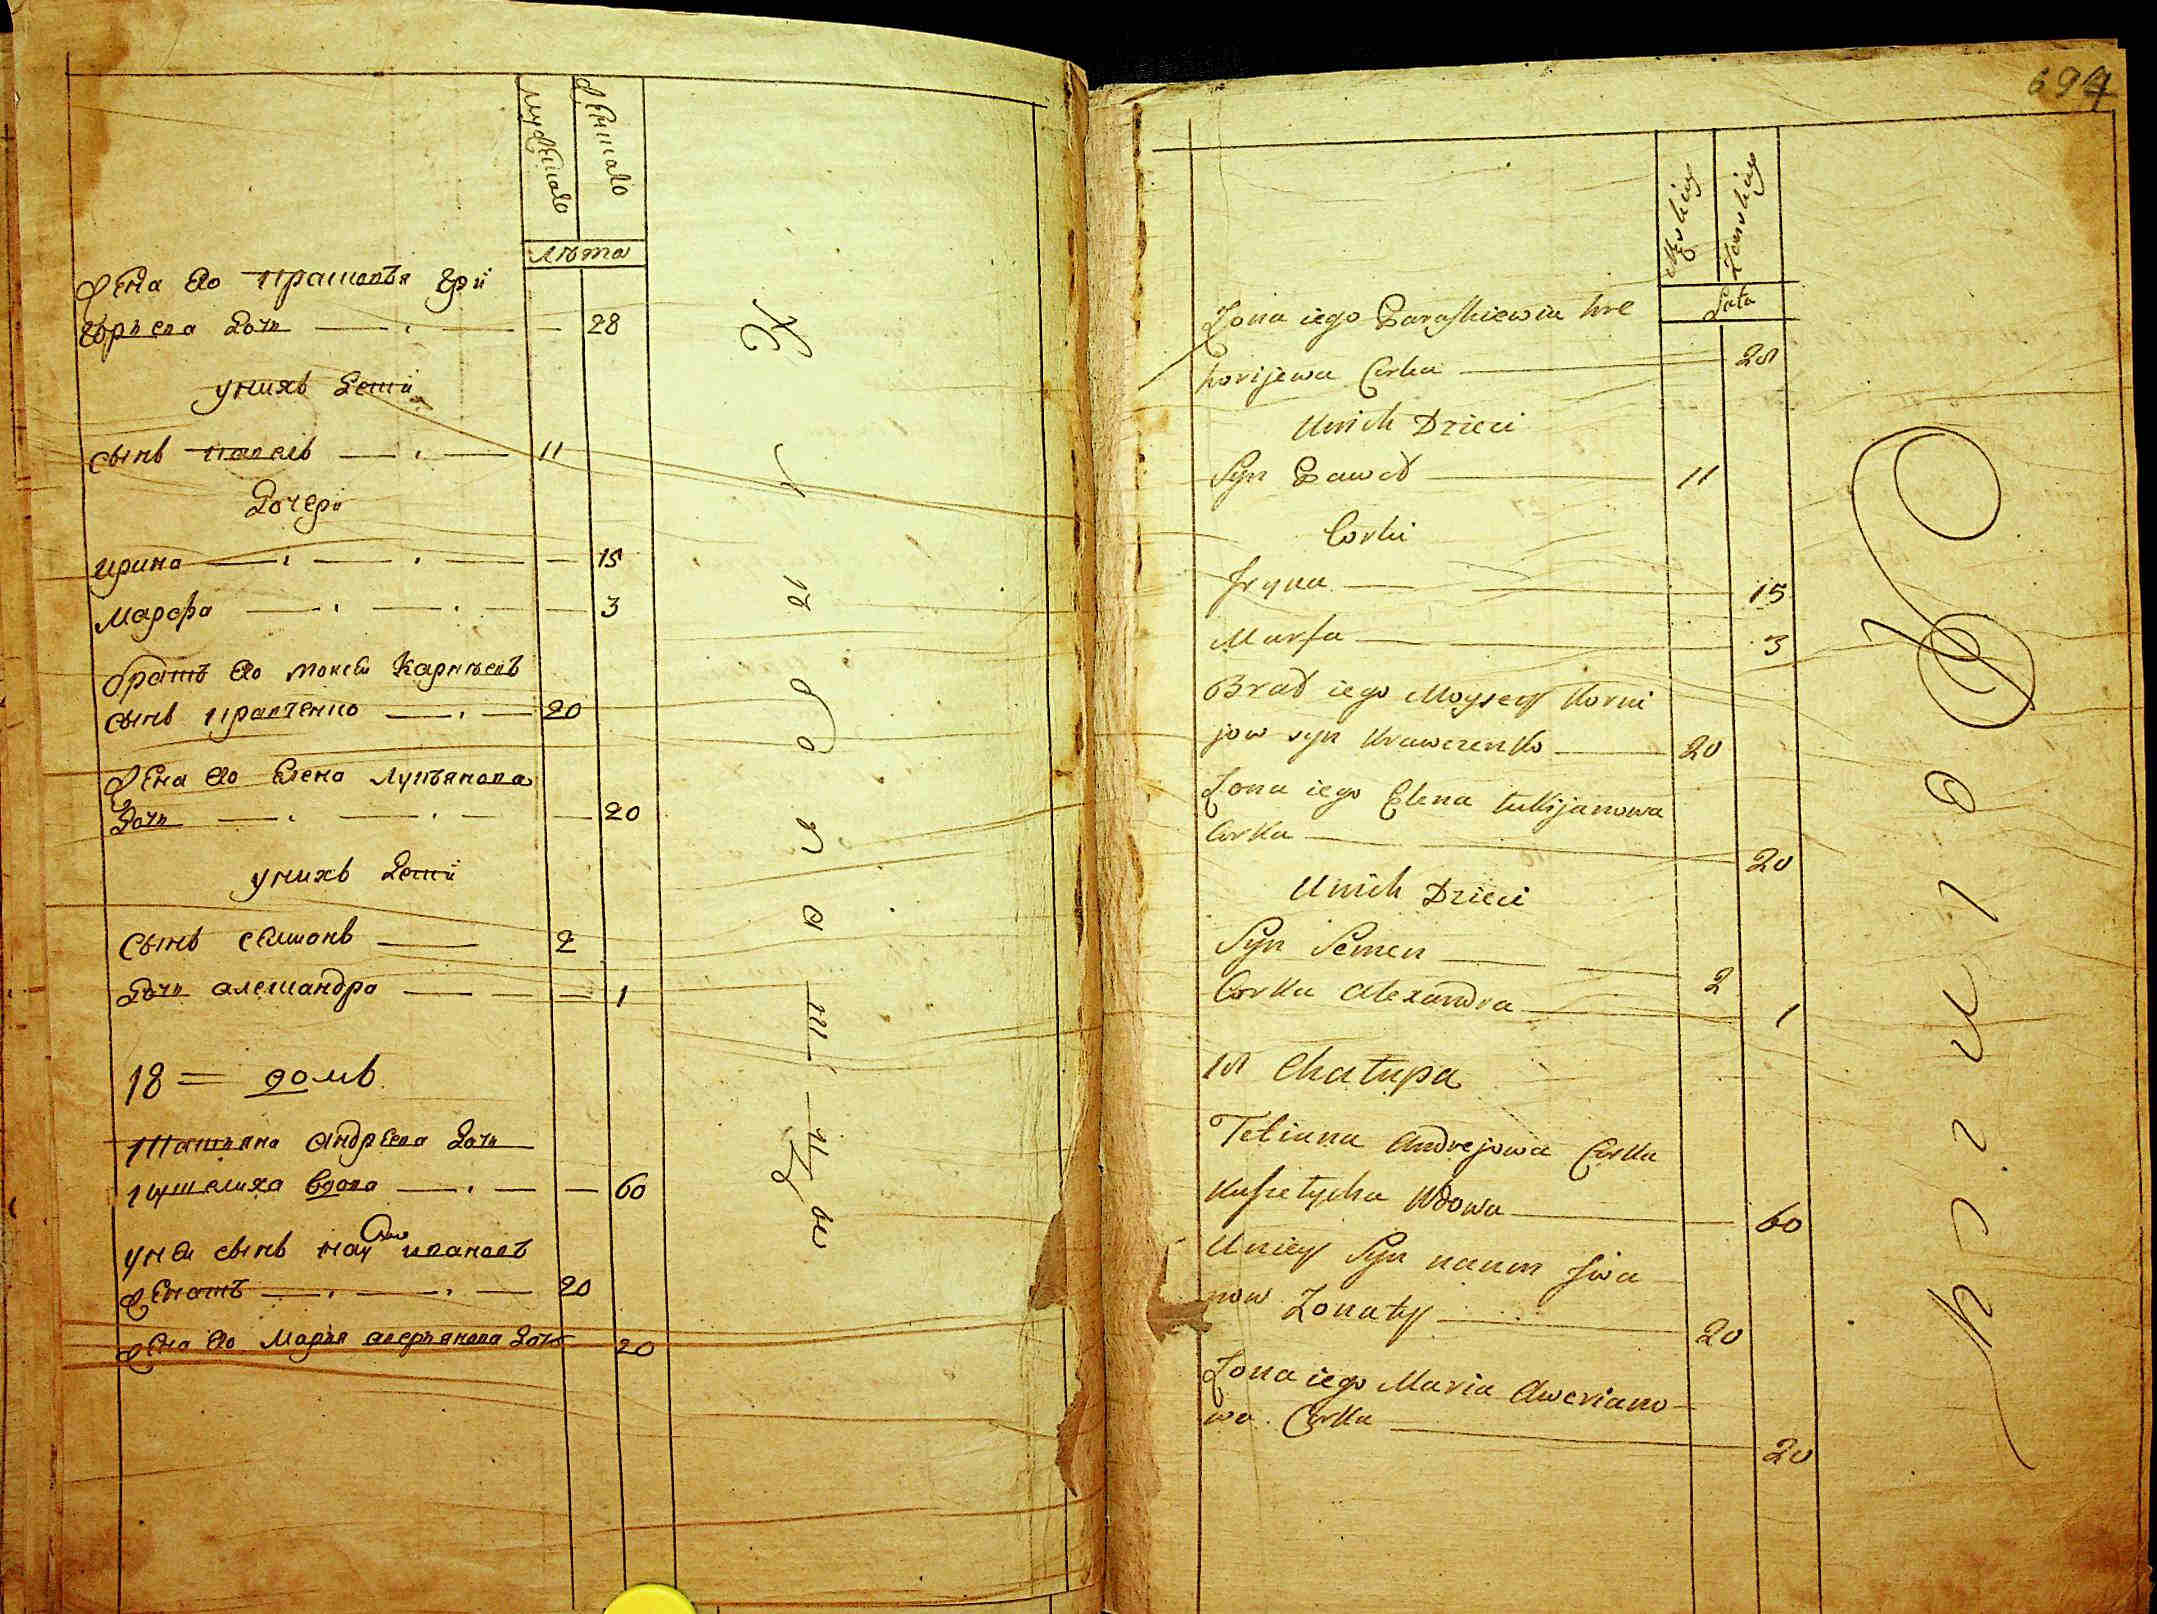 мужеска
женска
лѣта
Жена его Прасковья Гри
горьева дочь 28
у нихъ дети
сынъ Павелъ 11
дочери
Ирина 15
Марфа 3
братъ его Моисей Карнѣевъ
сынъ Кравченко 20
Жена его Елена Лукьянова
дочь 20
у нихъ дети
сынъ Семионъ 2
дочь Александра 1
18 = домъ
Татьяна Андреева дочь
вдова 60
у неи сынъ Наумъ Ивановъ
женатъ 20
жена его Марья Аверьянова дочь 20
694
Męskiey
Zenskiey
Lata
Zona iego Paraskiewia hre
horijewa Corka 28
Unich Dzieci
Syn Paweł 11
Corki
Iryna 15
Marfa 3
Brat iego Moysey Korni
jow syn Krawczenko 20
Zona iego Elena Łukijanowa
Corka 20
Unich Dzieci
Syn Semen 2
Corka Alexandra 1
18 Chałupa
Tetiana Andrejowa Corka
Wdowa 60
Uniey Syn naum Iwa
now Zonaty 20
Zona iego Maria Aweriano
wa Corka 20